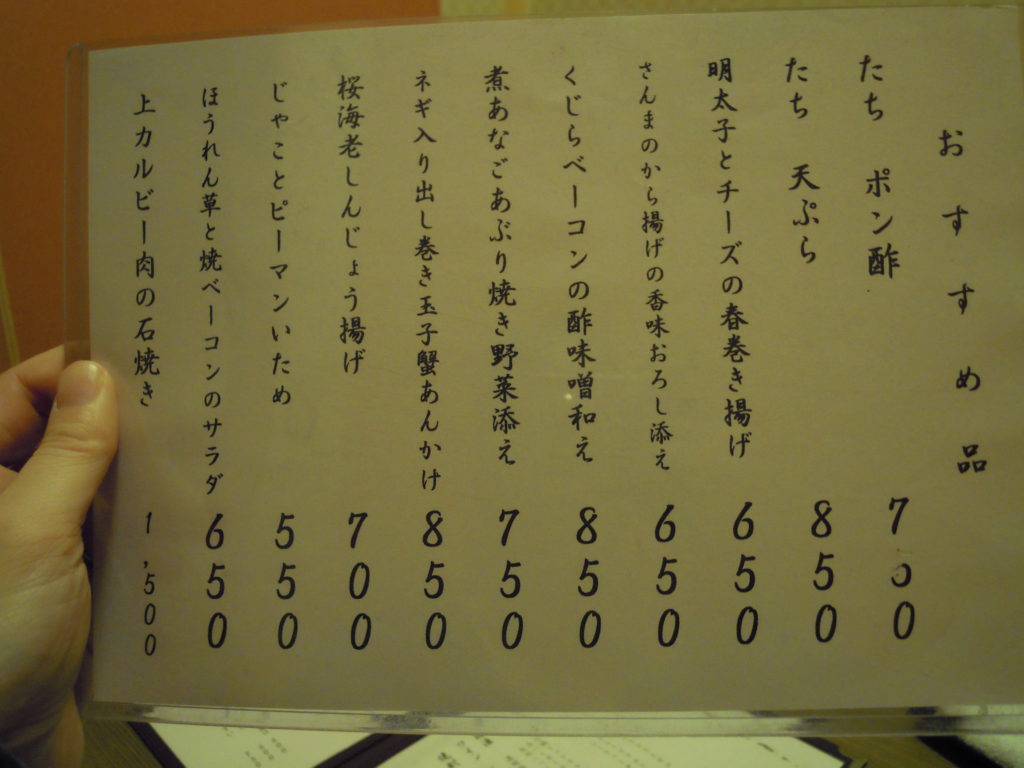 おすすめ品
たち ポン酢 700
たち 天ぷら 850
明太子とチーズの春巻き揚げ 650
さんまのから揚げの香味おろし添え 650
くじらベーコンの酢味噌和え 850
煮あなごあぶり焼き野菜添え 750
ネギ入り出し巻き玉子蟹あんかけ 850
桜海老しんじょう揚げ 700
じゃことピーマンいため 550
ほうれん草と焼ベーコンのサラダ 650
上カルビー肉の石焼き 1,500